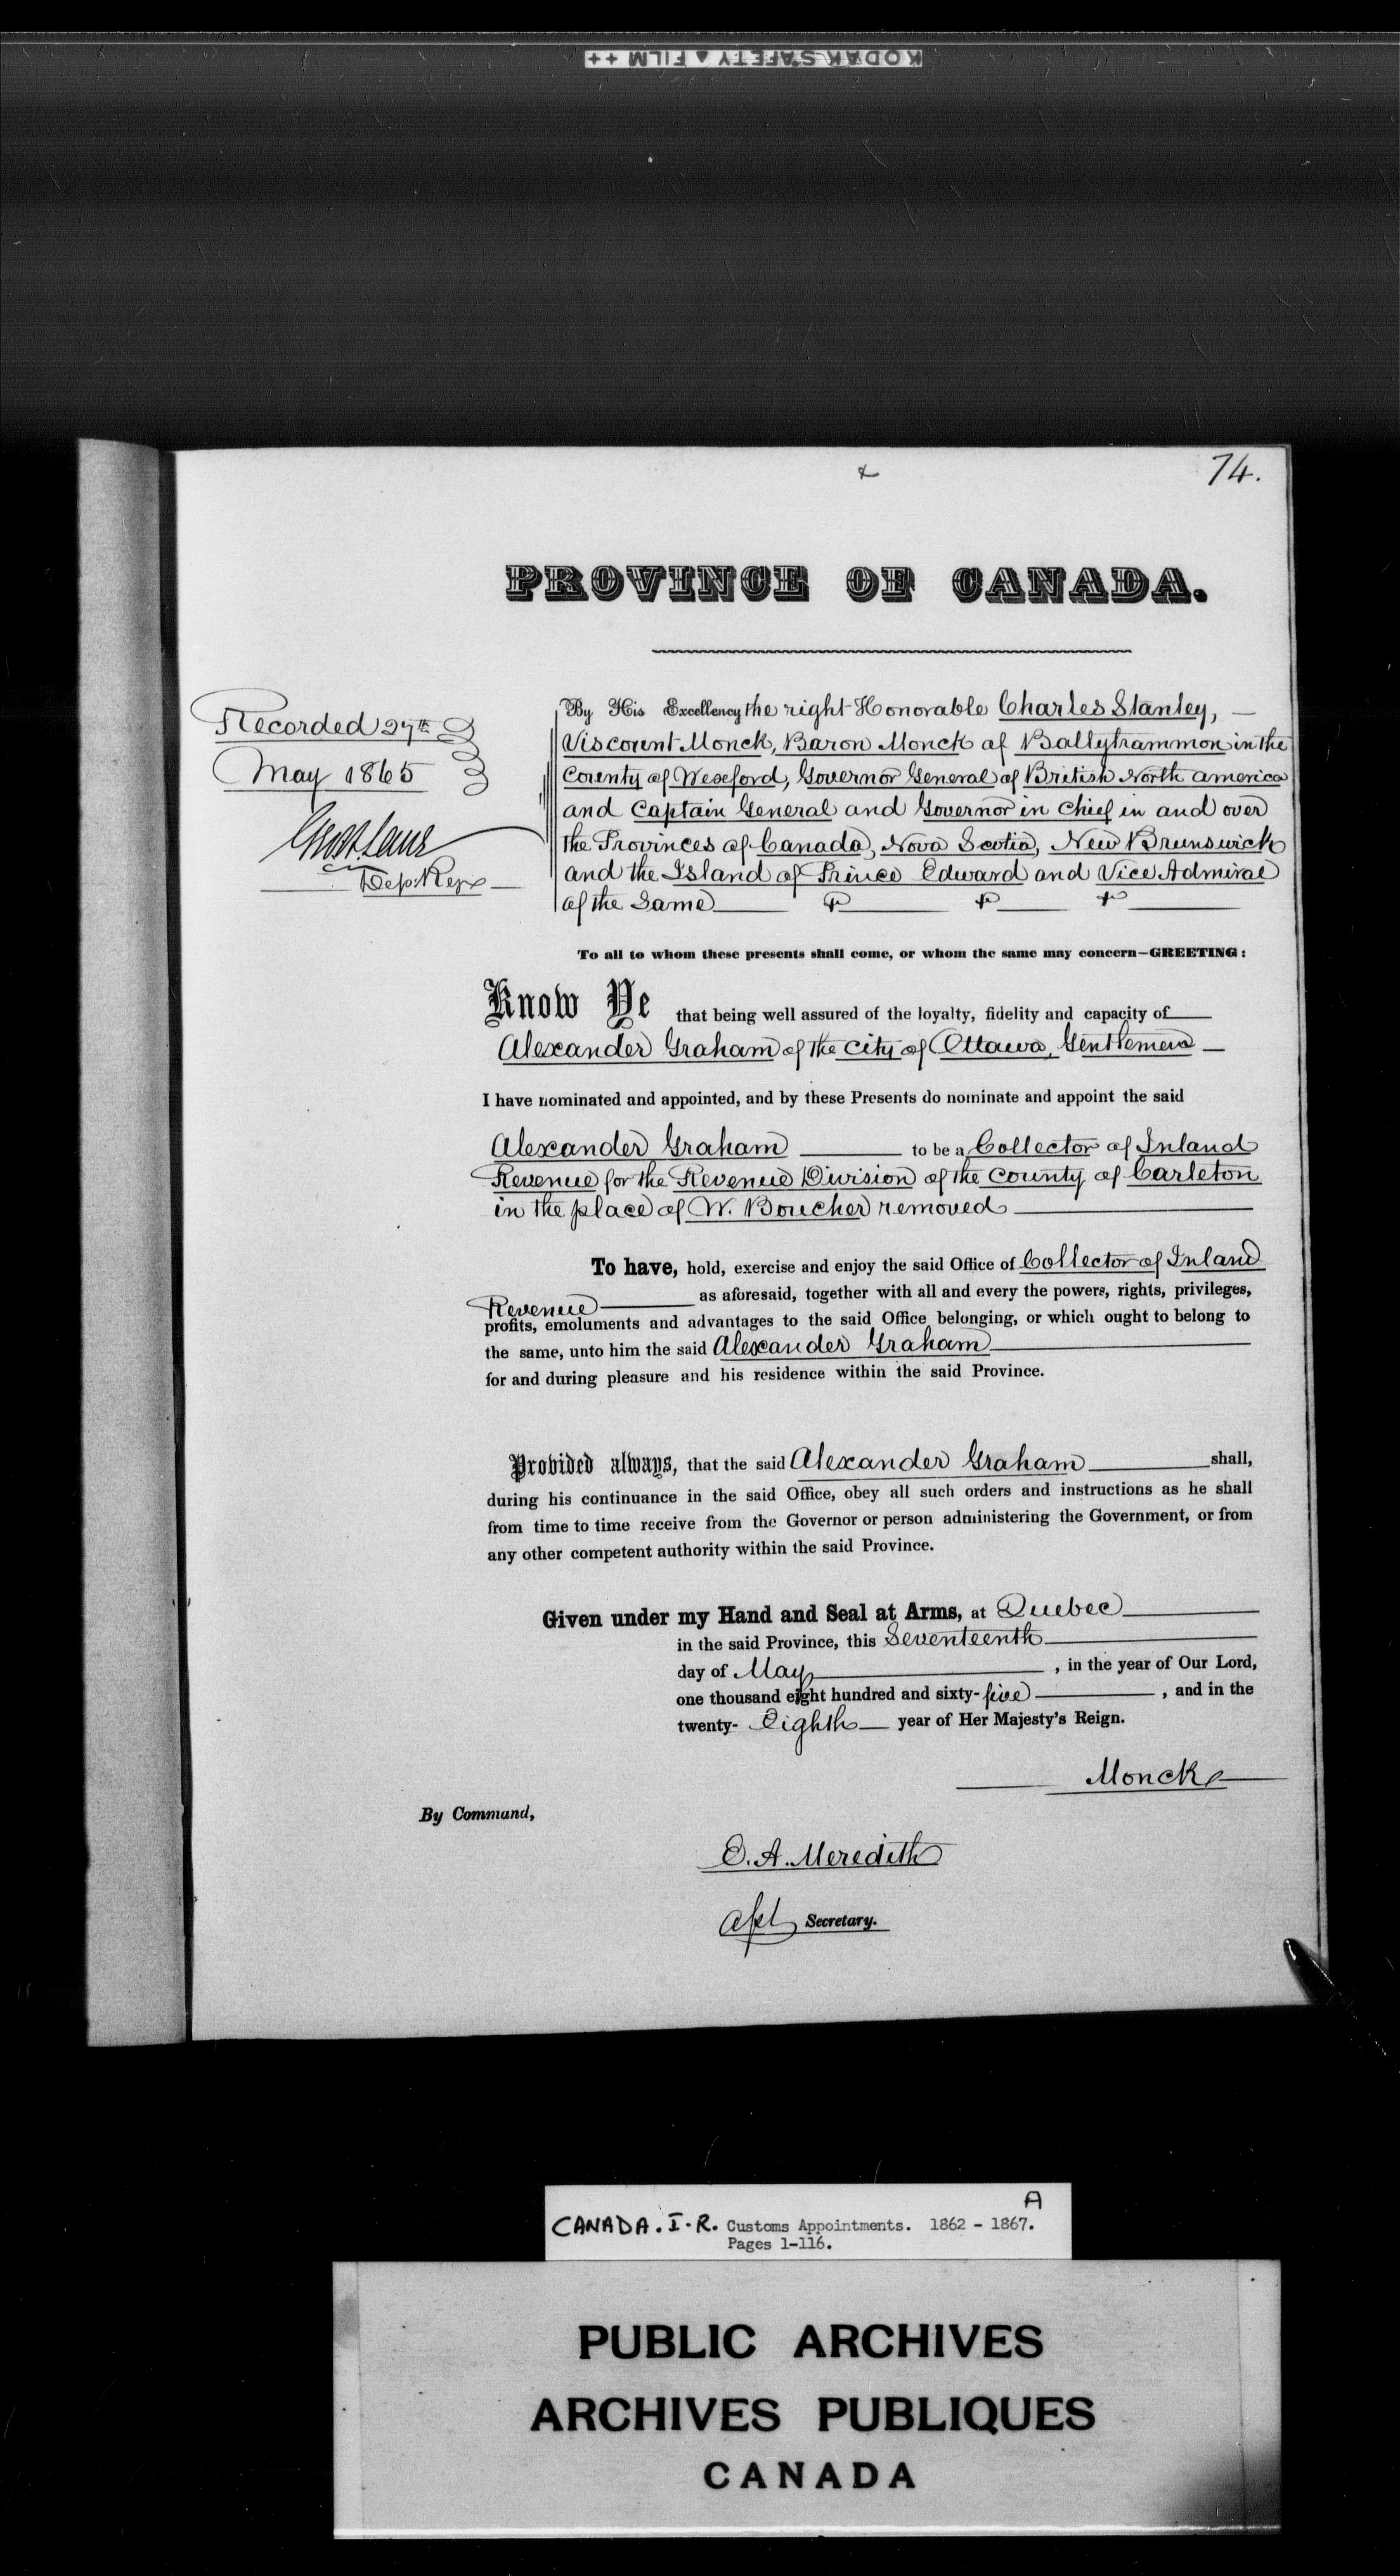 KODAK SAFETY ▲ FILM ++
74.
PROVINCE OF CANADA.
Recorded 27th
May 1865
Dep. Reg
By His Excellency the right Honorable Charles Stanley,
Viscount Monck, Baron Monck of Ballytrammon in the
County of Wexford, Governor General of British North America
and Captain General and Governor in Chief in and over
the Provinces of Canada, Nova Scotia, New Brunswick
and the Island of Prince Edward and Vice Admiral
of the Same
To all to whom these presents shall come, or whom the same may concern—GREETING:
Know Ye that being well assured of the loyalty, fidelity and capacity of
Alexander Graham of the City of Ottawa, Gentleman
I have nominated and appointed, and by these Presents do nominate and appoint the said
Alexander Graham to be a Collector of Inland
Revenue for the Revenue Division of the County of Carleton
in the place of W. Boucher removed
To have, hold, exercise and enjoy the said Office of Collector of Inland
Revenue as aforesaid, together with all and every the powers, rights, privileges,
profits, emoluments and advantages to the said Office belonging, or which ought to belong to
the same, unto him the said Alexander Graham
for and during pleasure and his residence within the said Province.
Provided always, that the said Alexander Graham shall,
during his continuance in the said Office, obey all such orders and instructions as he shall
from time to time receive from the Governor or person administering the Government, or from
any other competent authority within the said Province.
Given under my Hand and Seal at Arms, at Quebec
in the said Province, this Seventeenth
day of May, in the year of Our Lord,
one thousand eight hundred and sixty-five, and in the
twenty-Eighth year of Her Majesty's Reign.
Monck
By Command,
E. A. Meredith
Asst Secretary.
A
CANADA. I.R. Customs Appointments. 1862 - 1867.
Pages 1-116.
PUBLIC ARCHIVES
ARCHIVES PUBLIQUES
CANADA